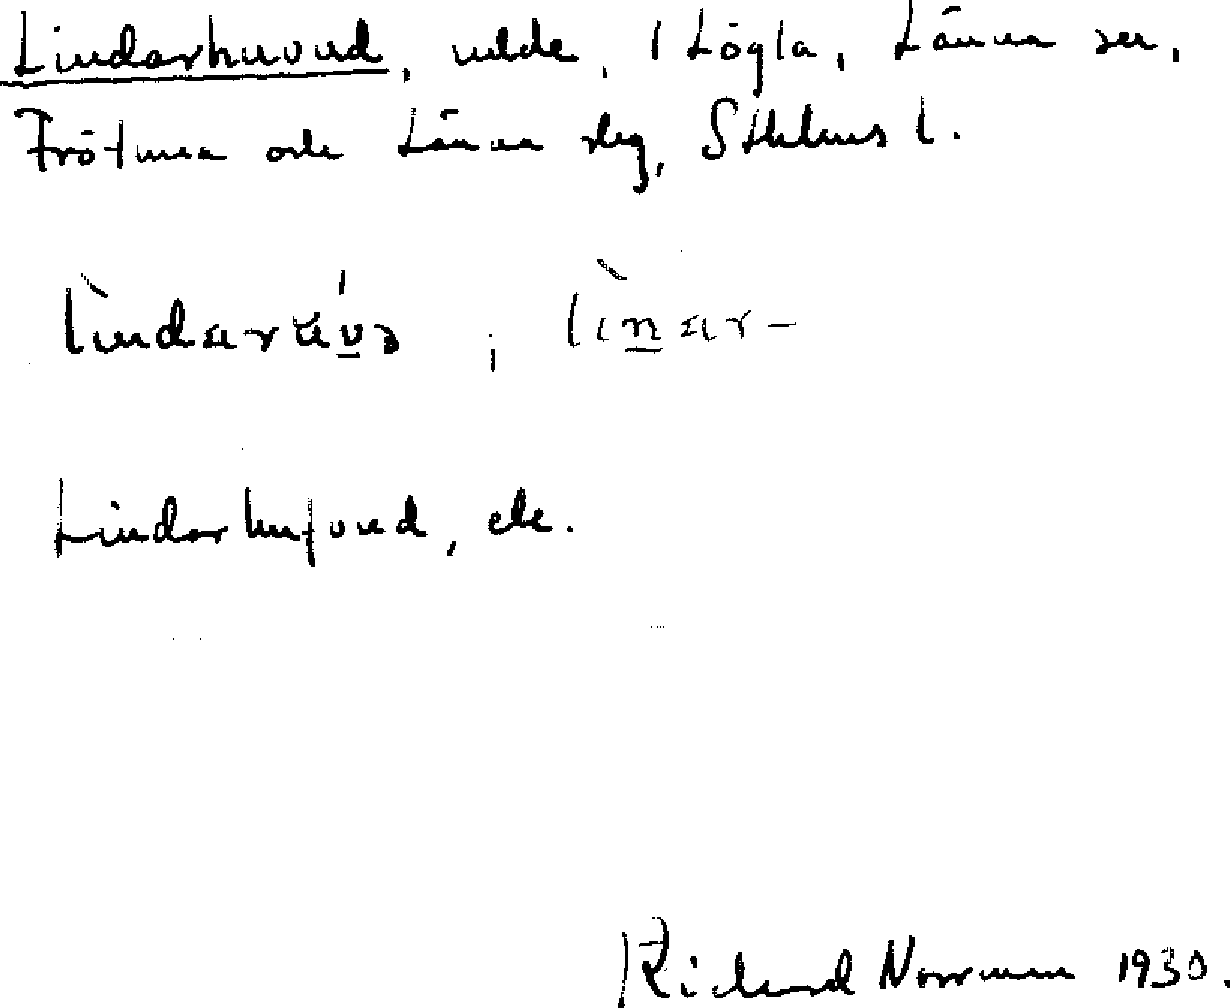 Lindarhuvud, udde, i Lögla, Länna sn,
Frötuna och Länna slg, Sthlms l.
Lindarhufvud, etc.
Rickard Norrman 1930.